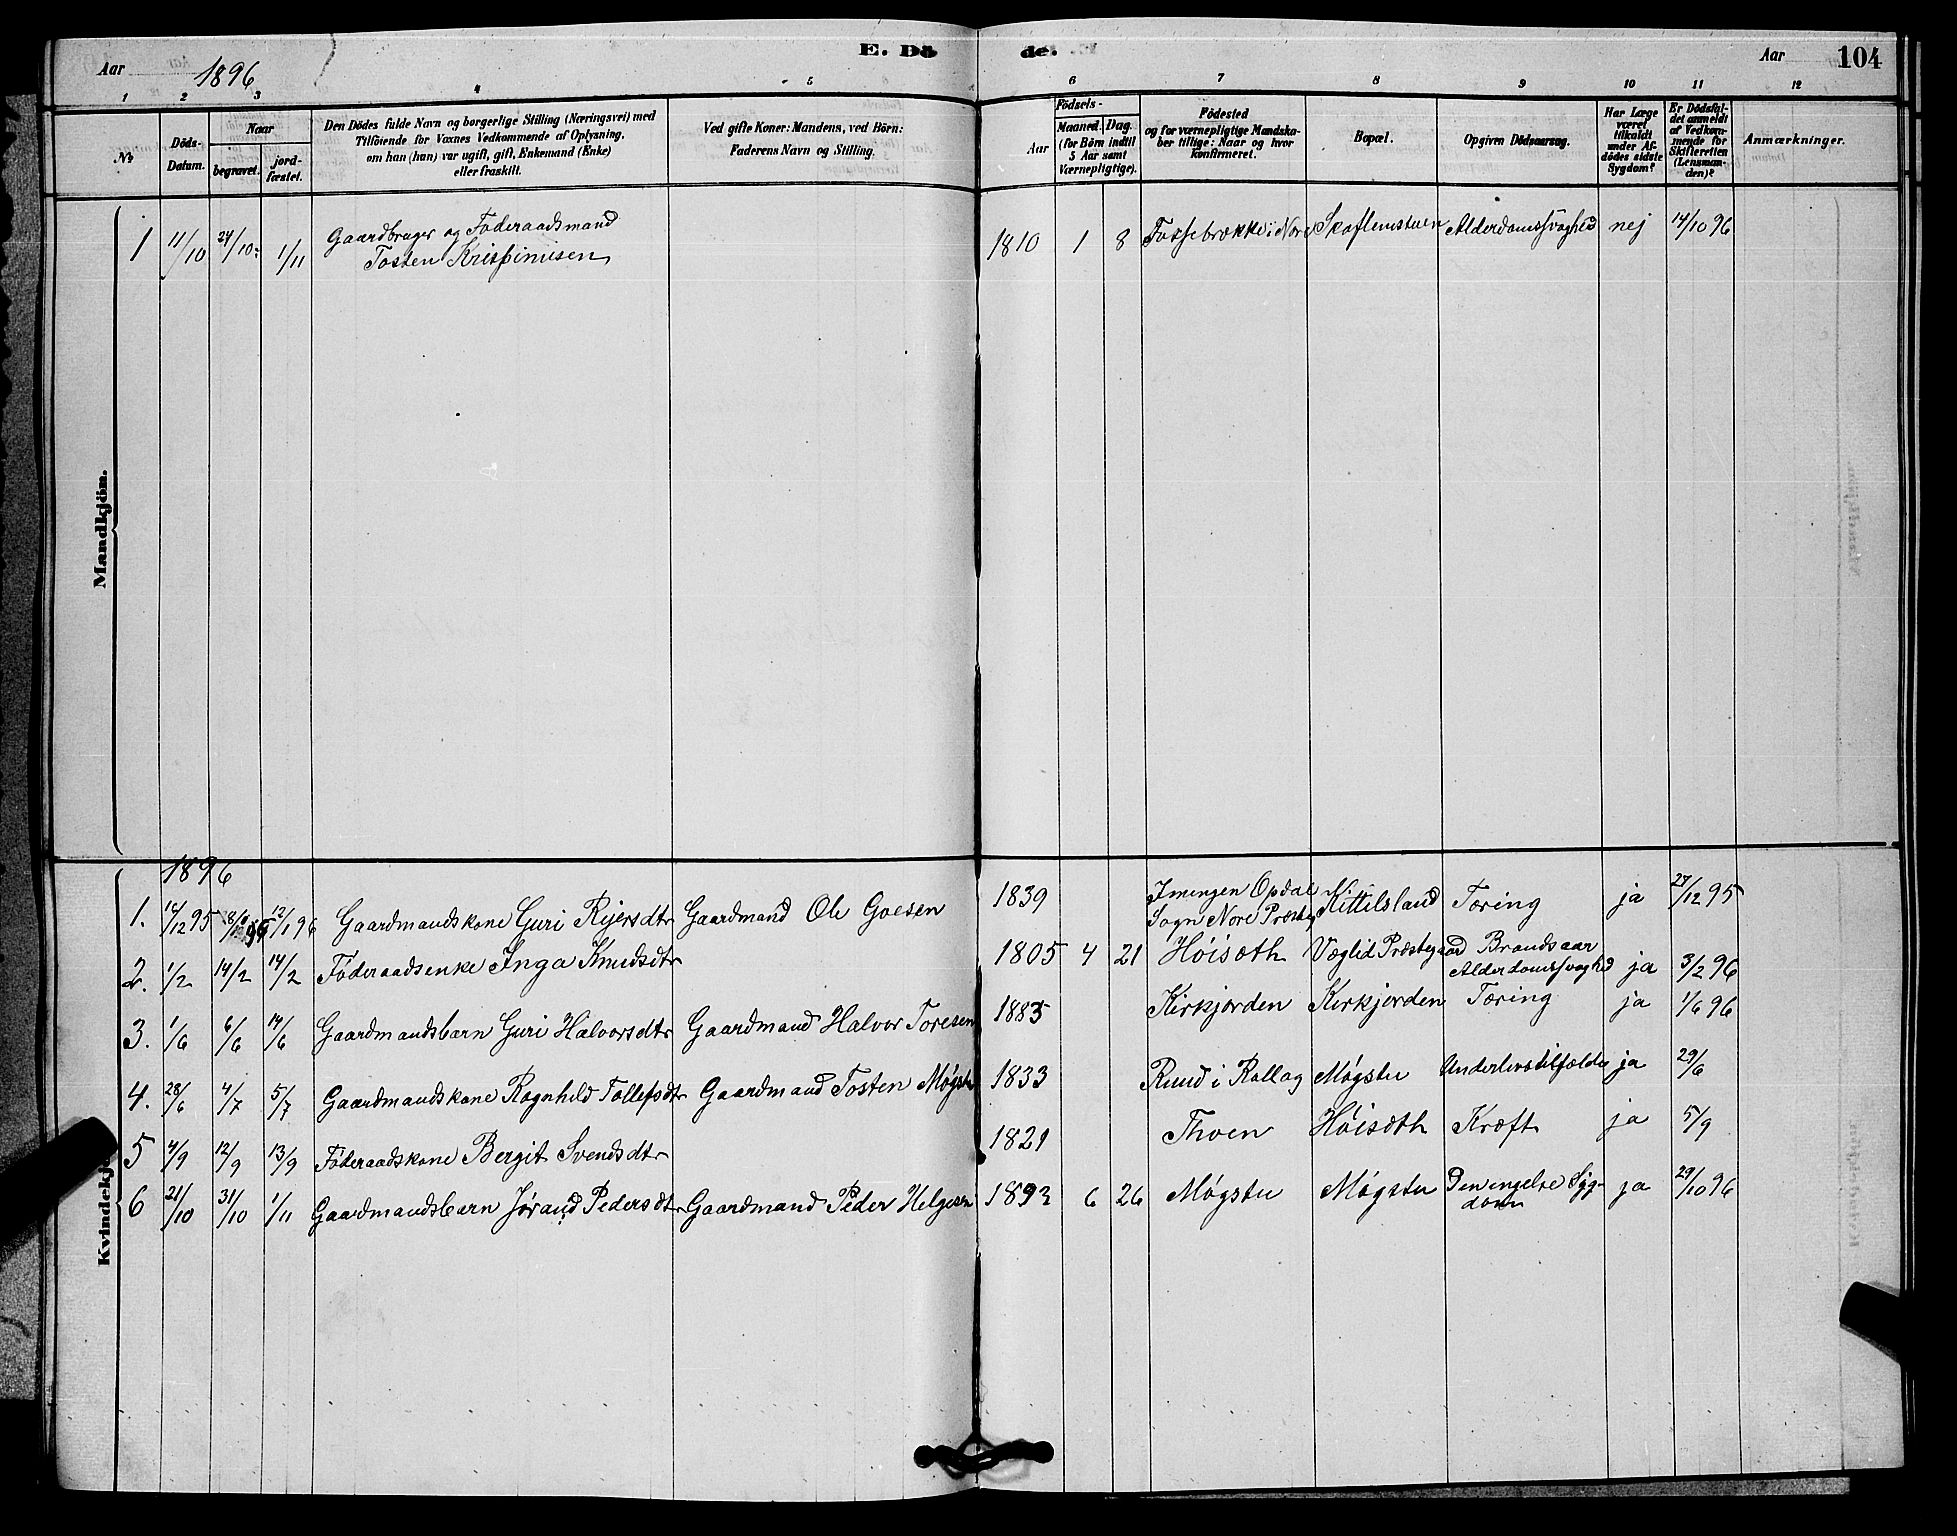 E. Dö de.
Aar 1896
Aar 104
1 2 3 4 5 6 7 8 9 10 11 12
No
Döds-Datum.
Naar
begravet.
jord-fæstet.
Den Dödes fulde Navn og borgerlige Stilling (Næringsvei) med
Tilföiende for Voxnes Vedkommende af Oplysning,
om han (hun) var ugift, gift, Enkemand (Enke)
eller fraskilt.
Ved gifte Koner: Mandens, ved Börn:
Faderens Navn og Stilling.
Födsels-
Aar
Maaned. Dag.
(for Börn indtil
5 Aar samt
Værnepligtige).
Födested
og for værnepligtige Mandska-
ber tillige: Naar og hvor
konfirmeret.
Bopæl.
Opgiven Dödsaarsag.
Har Læge
været
tilkaldt
under Af-
dödes sidste
Sygdom?
Er Dödsfal-
det anmeldt
af Vedkom-
mende for
Skifteretten
(Lensman-
den)?
Anmærkninger.
Mandkjön.
1 11/10 24/10 1/11 Gaardbruger og Føderaadsmand
Tosten Krispinusen 1810 1 8 Fossebrække i Nore Skaflemstuen Alderdomssvaghed nej 14/10 96
Kvindekj
1896
1. 95 12/1 96 Gaardmandskone Guri Rejersdtr Gaardmand Ole Goesen 1839 Imingen Opdal
Sogn Nore Præsteg Kittilsland Tæring ja 27/12 95
2. 1/2 14/2 14/2 Føderaadsenke Inga Knudsdtr 1805 4 21 Høisæth Væglid Præstegaard Brandsaar
Alderdomssvaghed ja 3/2 96
3. 1/6 6/6 14/6 Gaardmandsbarn Guri Halvorsdtr Gaardmand Halvor Toresen 1883 Kirkjorden Kirkjorden Tæring ja 1/6 96
4. 28/6 4/7 5/7 Gaardmandskone Ragnhild Tollefsdtr Gaardmand Tosten Møgstu 1833 Ruud i Rollag Møgstu Underlivstilfælde ja 29/6
5 4/9 12/9 13/9 Føderaadskone Bergit Svendsdtr 1821 Thoen Høisæth Kræft ja 5/9
6 21/10 31/10 1/11 Gaardmandsbarn Jørand Pedersdtr Gaardmand Peder Helgesen 1893 6 26 Møgstu Møgstu Den engelske Syg-
dom ja 29/10 96